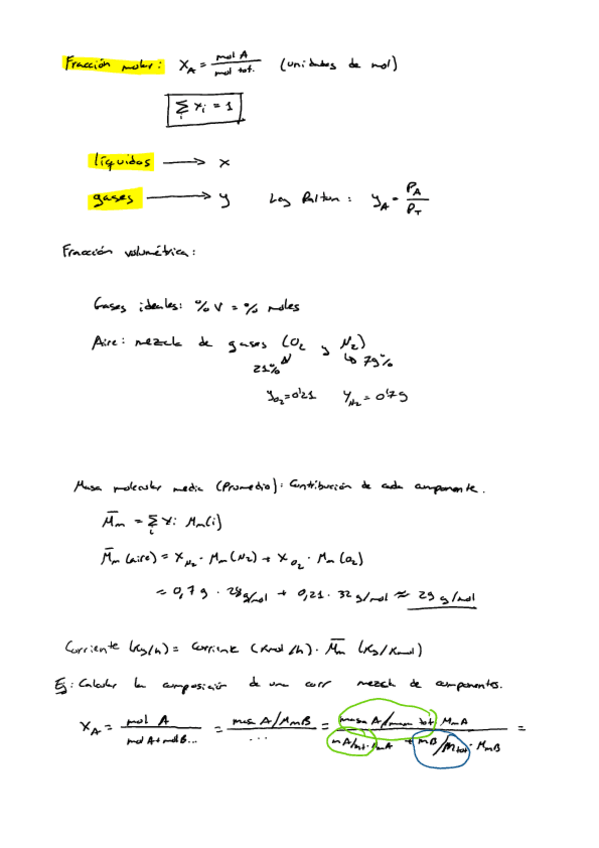 Fracción molar: X_A = mol A / mol tot. (unidades de mol)
Σ_i x_i = 1
líquidos → x
gases → y Ley Dalton: y_A = P_A / P_T
Fracción volumétrica:
Gases ideales: % V = % moles
Aire: mezcla de gases (O2 y N2)
21% 79%
y_O2 = 0'21 y_N2 = 0'79
Masa molecular media (Promedio): Contribución de cada componente.
M̄m = Σ_i x_i Mm(i)
M̄m (aire) = X_N2 · Mm(N2) + X_O2 · Mm(O2)
= 0,79 · 28 g/mol + 0,21 · 32 g/mol ≈ 29 g/mol
Corriente (Kg/h) = Corriente (Kmol/h) · M̄m (Kg/Kmol)
Ej: Calcular la composición de una corr mezcla de componentes.
X_A = mol A / mol A + mol B... = masa A/MmB / ... = masa A/masa tot MmA / mA/mtot · MmA + mB/Mtot · MmB =